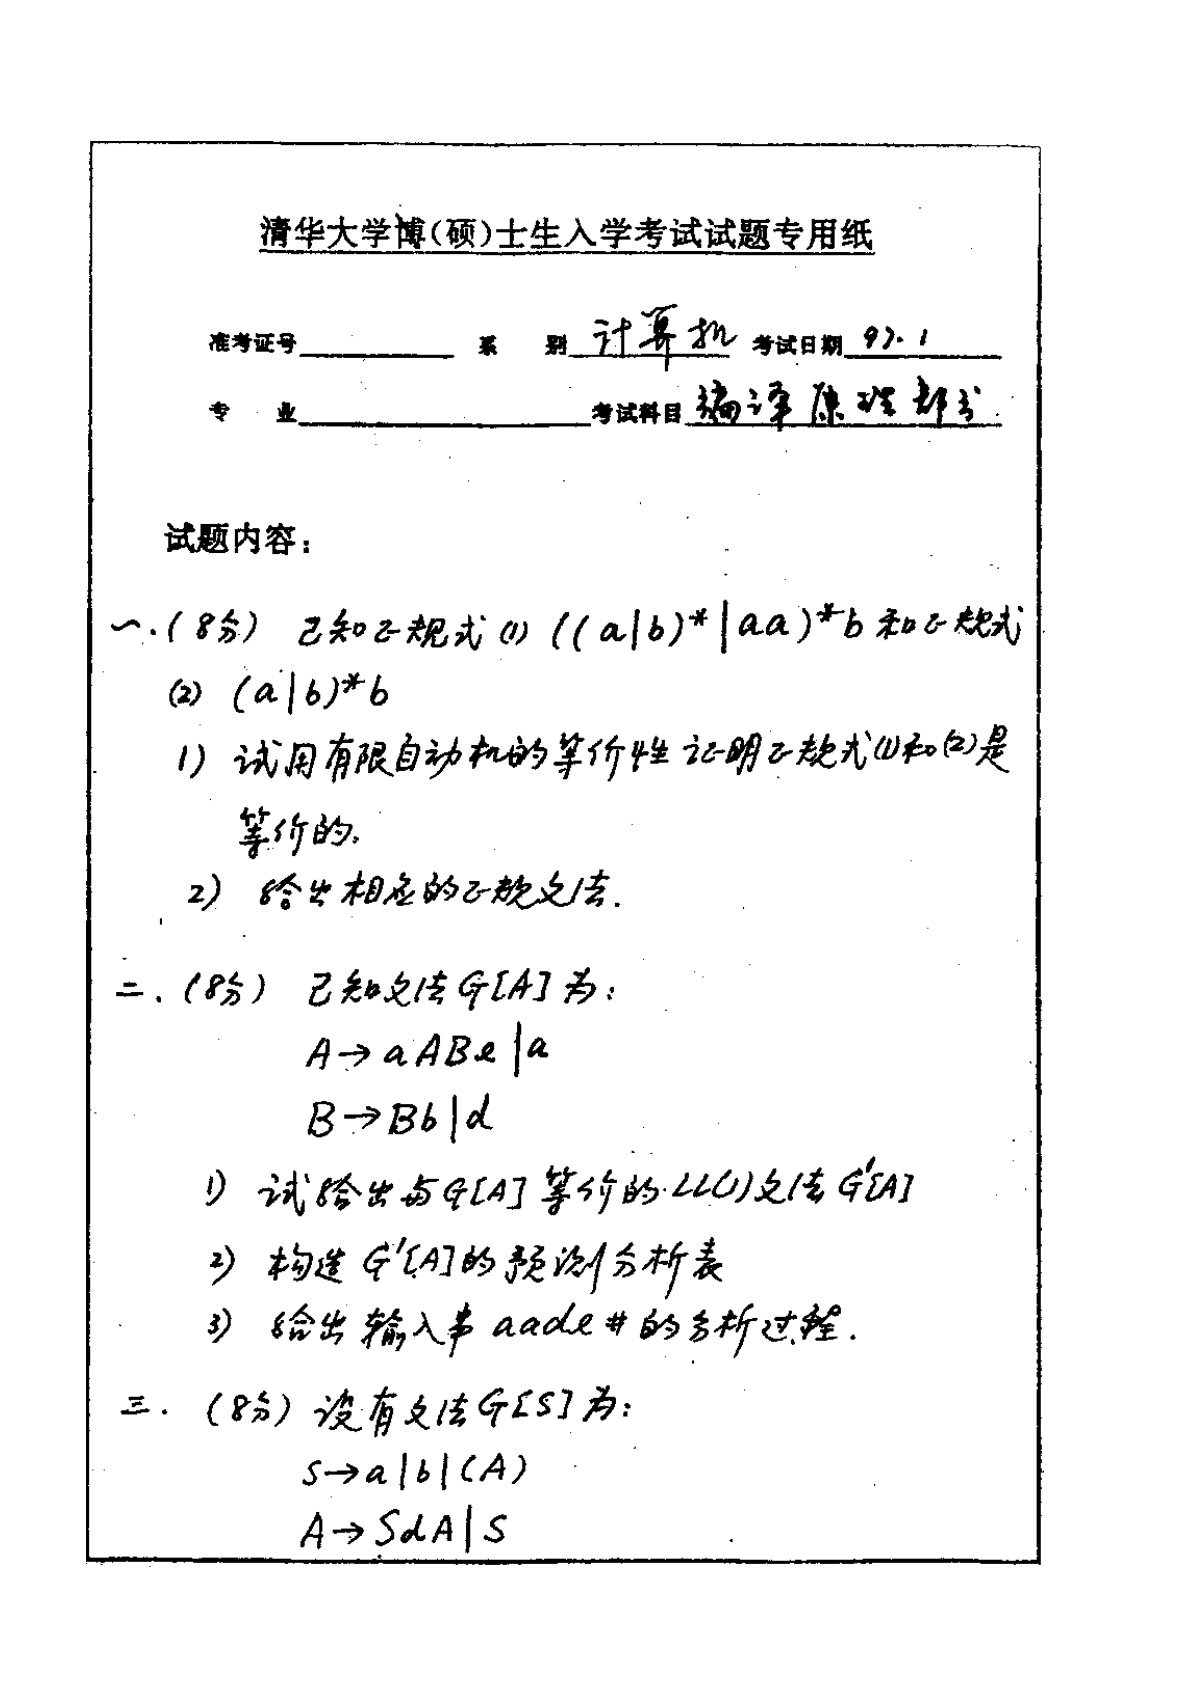 清华大学博(硕)士生入学考试试题专用纸
准考证号 系 别 计算机 考试日期 97.1
专 业 考试科目 编译原理部分
试题内容:
一.(8分) 已知正规式(1) ((a|b)*|aa)*b 和正规式
(2) (a|b)*b
1) 试用有限自动机的等价性证明正规式(1)和(2)是
等价的.
2) 给出相应的正规文法.
二.(8分) 已知文法G[A]为:
A→aABe|a
B→Bb|d
1) 试给出与G[A]等价的LL(1)文法G'[A]
2) 构造G'[A]的预测分析表
3) 给出输入串aade#的分析过程.
三.(8分) 设有文法G[S]为:
S→a|b|(A)
A→SdA|S